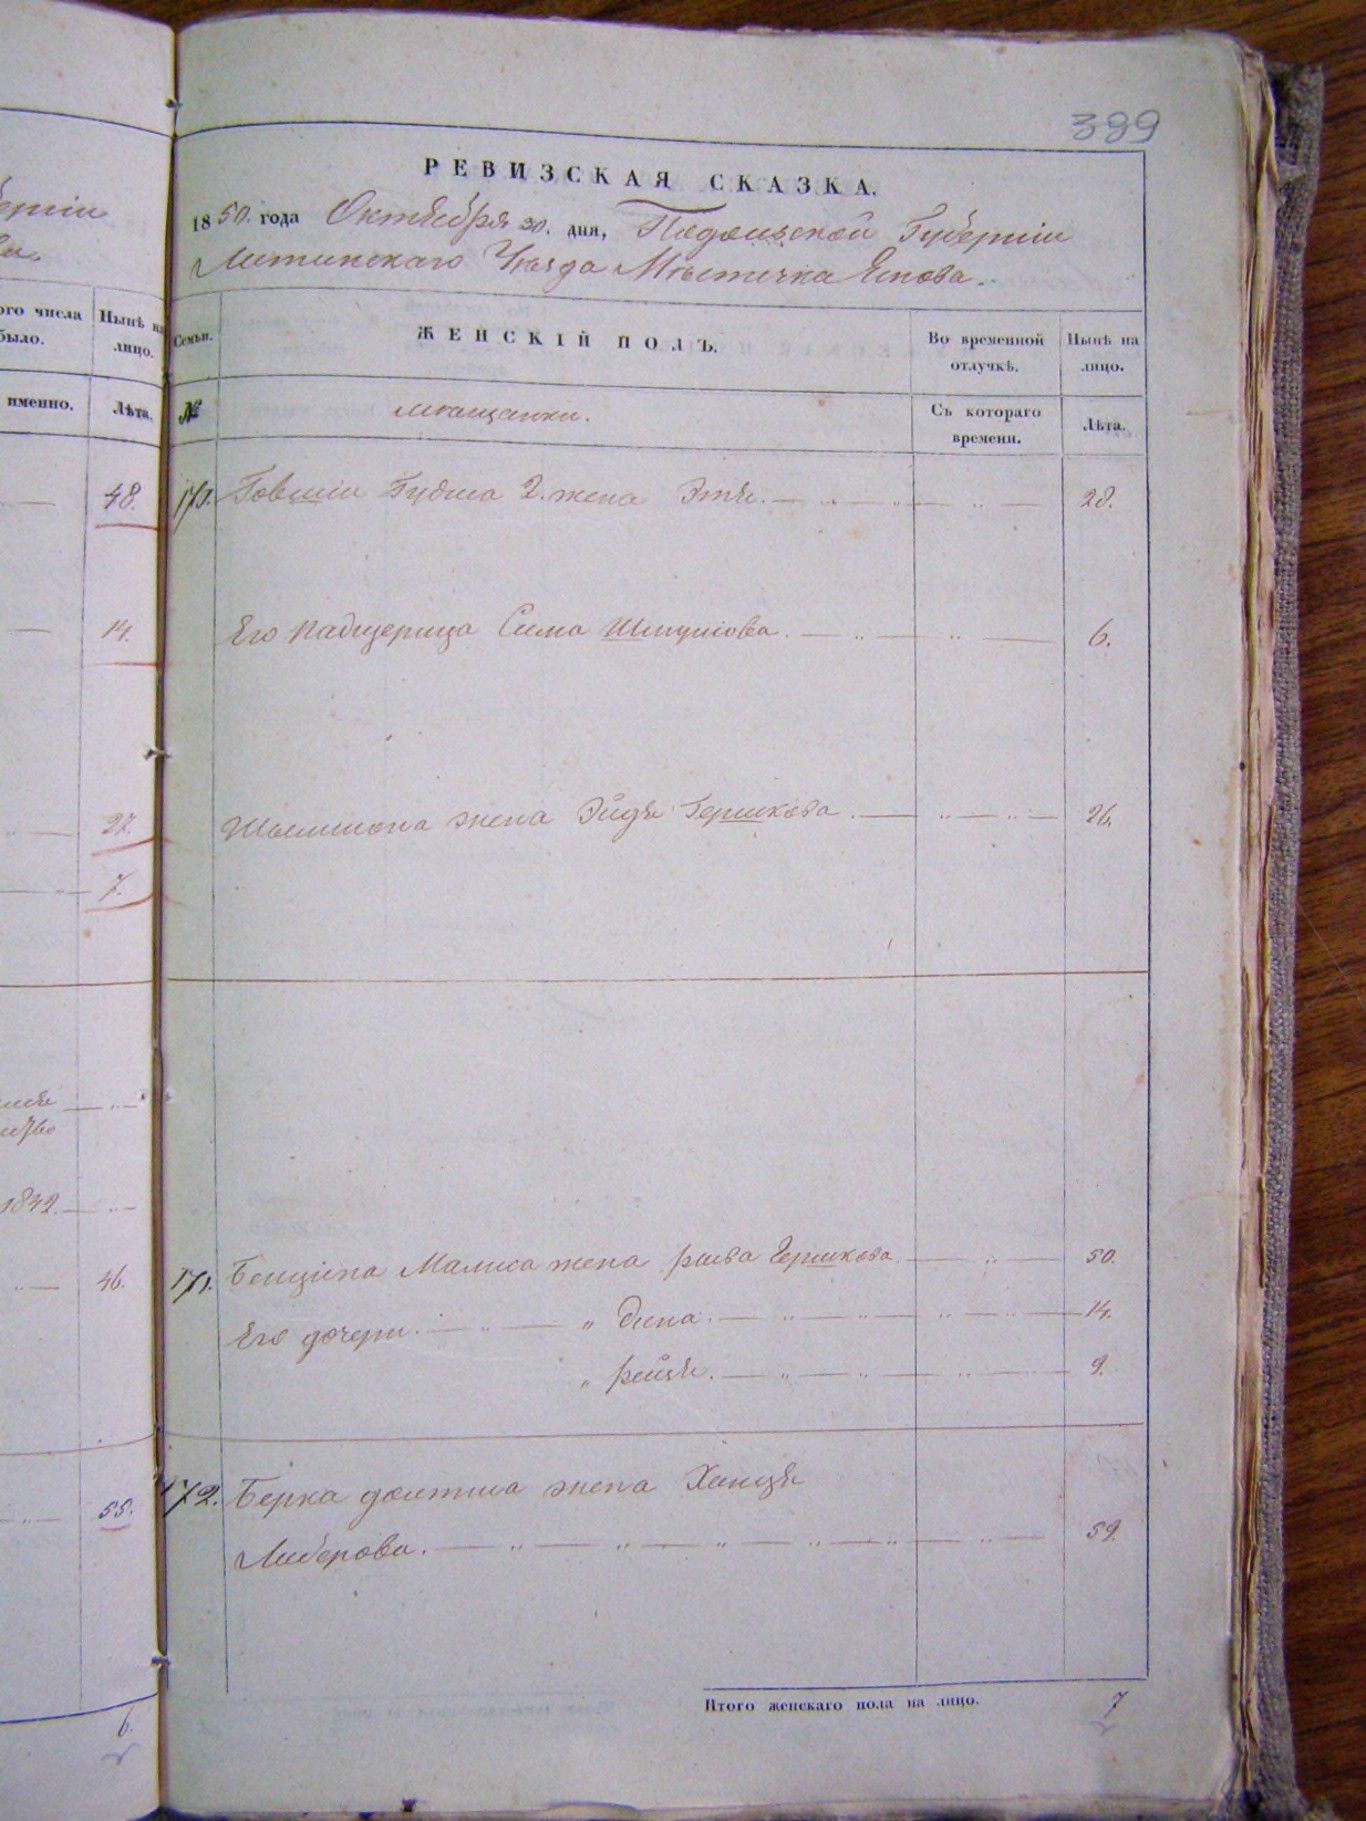 399
РЕВИЗСКАЯ СКАЗКА.
1850. года Октября 30. дня, Подольской Губернии
Литинскаго Уезда Местечка Янова.
ого числа
было.
Нынѣ на
лицо.
именно.
Лѣта.
Семьи.
ЖЕНСКІЙ ПОЛЪ.
Во временной
отлучкѣ.
Нынѣ на
лицо.
№
мещанки.
Съ котораго
времени.
Лѣта.
48.
14.
27.
7.
1842.
46.
55.
6.
Говшіи Гудиса 2. жена Этя. 28.
Его падщерица Сима Шмулiова. 6.
Шлиомона жена Эйдя Гершкова. 26.
171. Бенціона Малиса жена рыва Гершкова. 50.
Его дочери. " Дина. 14.
" рейзя. 9.
172. Берка жена Ханця
Либерова. 59.
Итого женскаго пола на лицо. 7